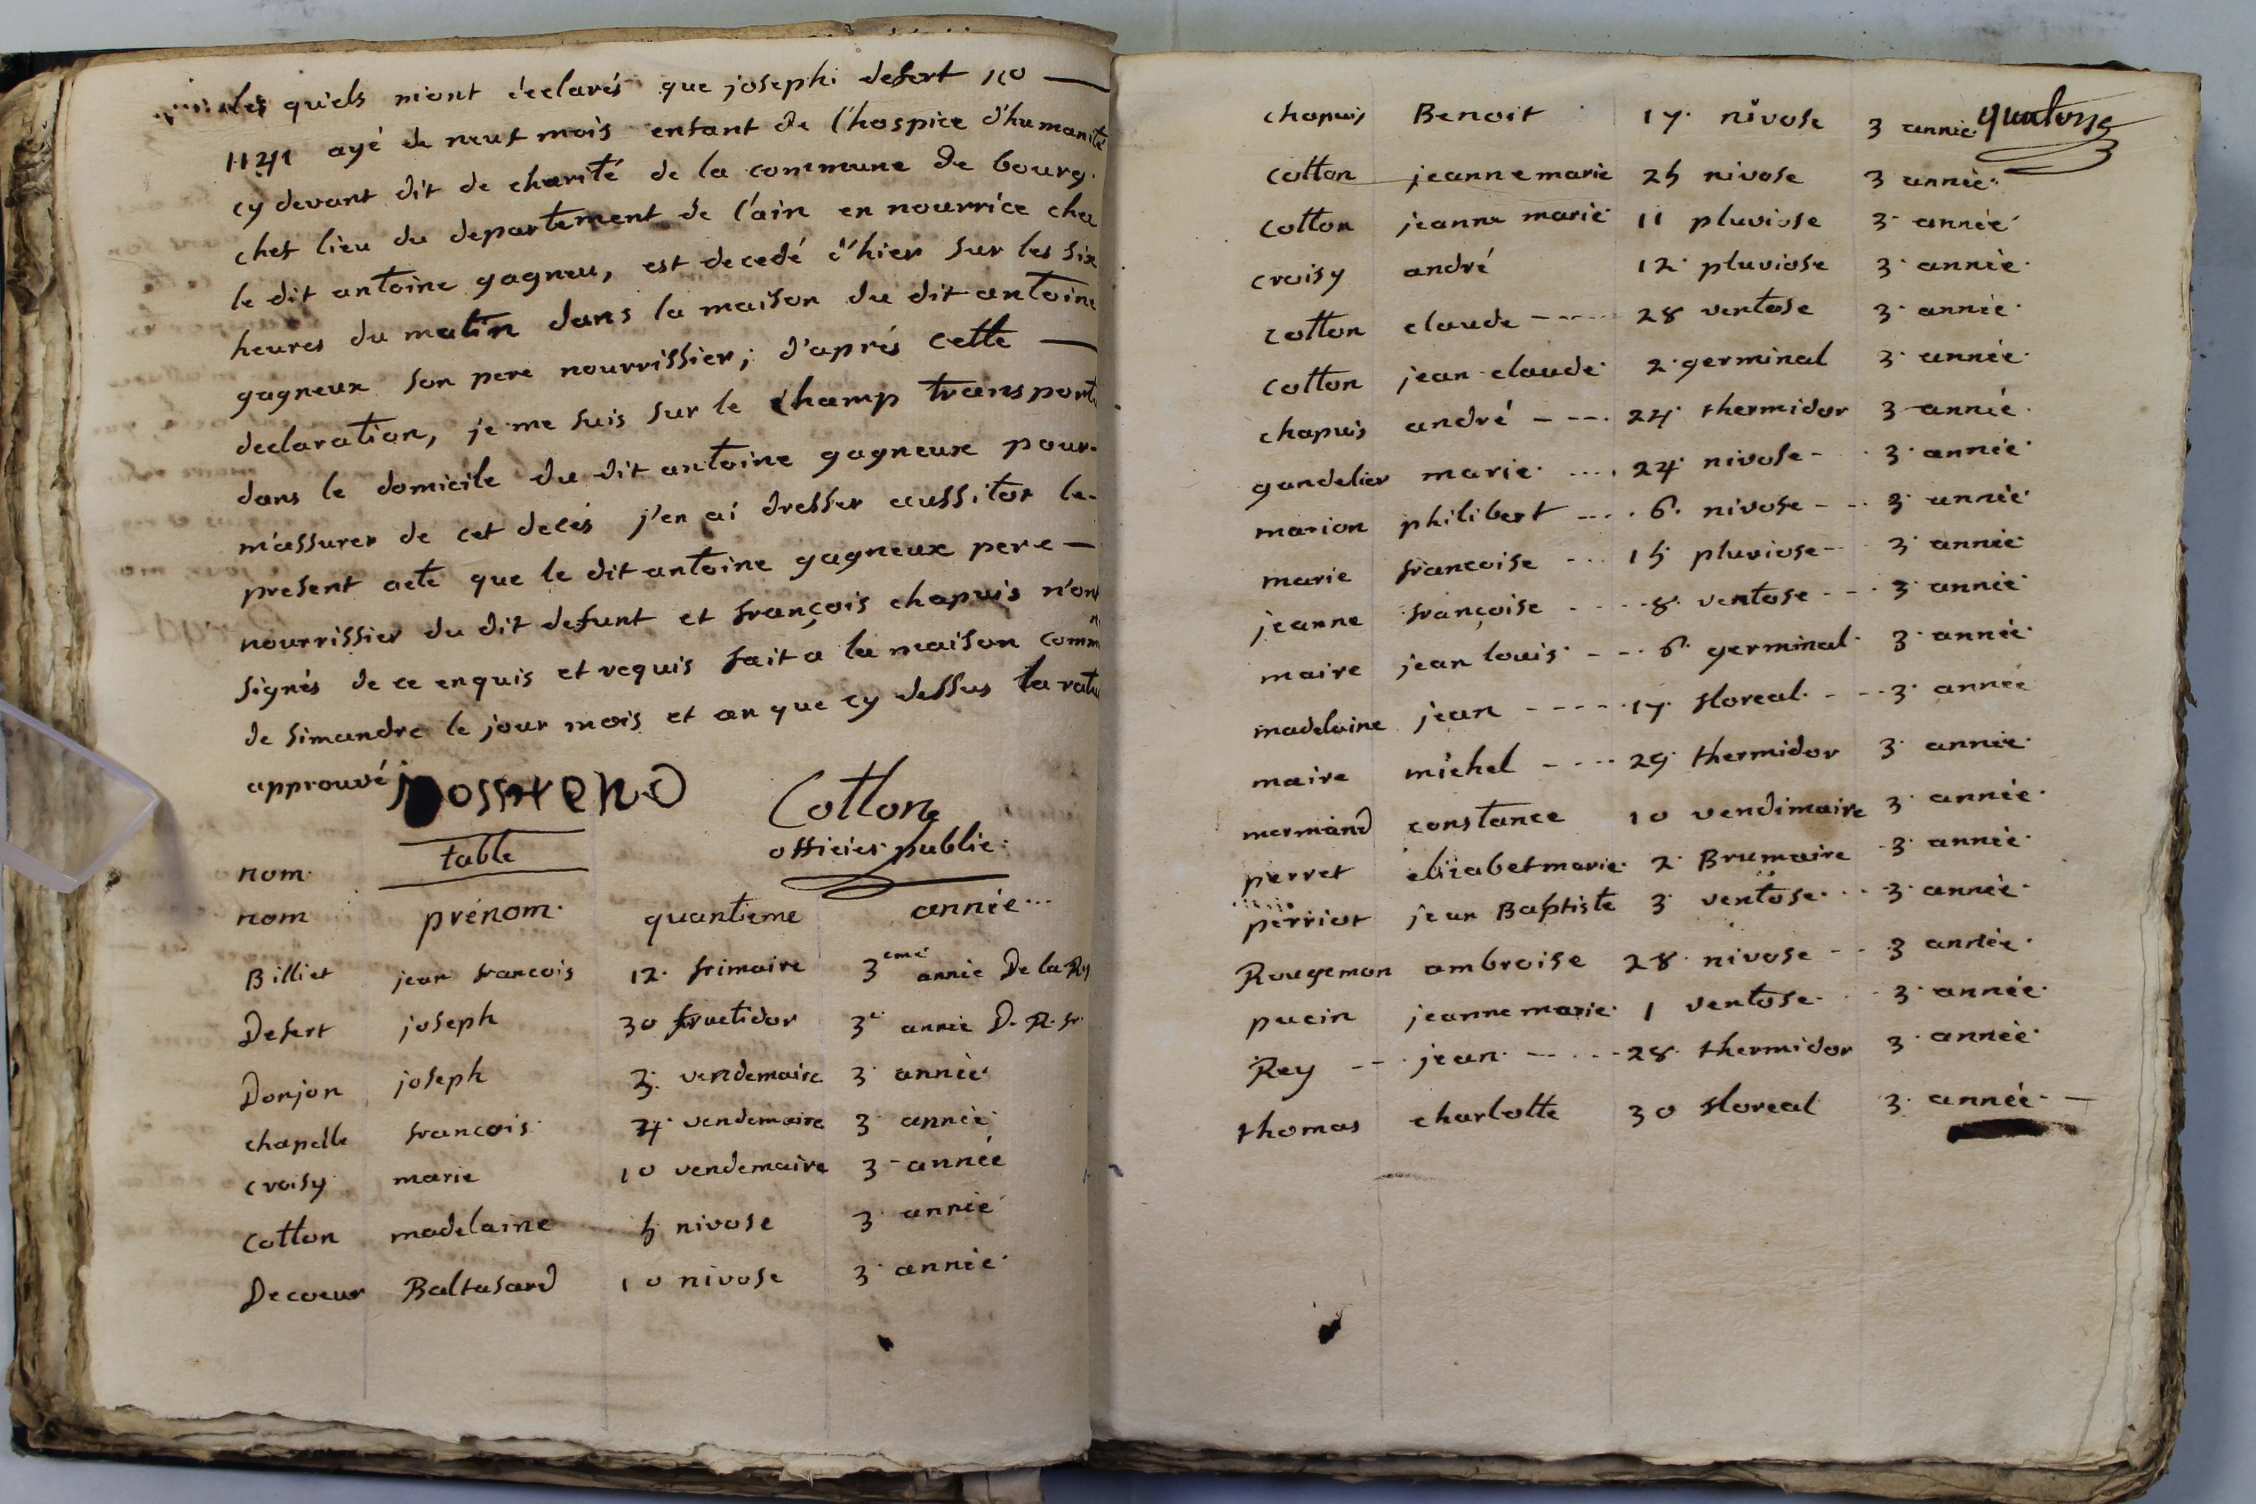 les quels m'ont déclarés que joseph desert no
1141 agé de neuf mois enfant de l'hospice d'humanité
cy devant dit de charité de la commune de bourg
chef lieu du departement de l'ain en nourrice chez
le dit antoine gagneu, est decedé d'hier sur les six
heures du matin dans la maison du dit antoine
gagneux son pere nourrissier; d'aprés cette
declaration, je me suis sur le champ transporté
dans le domicile du dit antoine gagneux pour
m'assurer de cet decés j'en ai dresser aussitot le
present acte que le dit antoine gagneux pere
nourrissier du dit defunt et françois chapuis n'ont
signés de ce enquis et requis fait a la maison comm
de simandre le jour mois et an que cy dessus la ratu
approuvé
Cotton
officier public
table
nom
nom prénom quantieme année
Billiet jean francois 12 frimaire 3eme année De la R
Desert joseph 30 fructidor 3e année D. R. fr
Donjon joseph 3 vendemaire 3 année
chapelle francois 4 vendemaire 3 année
croisy marie 10 vendemaire 3 année
Cotton madelaine 5 nivose 3 année
Decoeur Baltasard 10 nivose 3 année
quatorse
chapuis Benoit 17 nivose 3 année
Cotton jeanne marie 25 nivose 3 année
Cotton jeanne marie 11 pluviose 3 année
croisy andré 12 pluviose 3 année
Cotton claude 28 ventose 3 année
Cotton jean claude 2 germinal 3 année
chapuis andré 24 thermidor 3 année
gandelier marie 24 nivose 3 année
marion philibert 6 nivose 3 année
marie francoise 15 pluviose 3 année
jeanne françoise 8 ventose 3 année
maire jean louis 6 germinal 3 année
madelaine jean 17 floreal 3 année
maire michel 29 thermidor 3 année
mermand constance 10 vendimaire 3 année
perret elizabet marie 2 Brumaire 3 année
perriot jean Baptiste 3 ventose 3 année
Rougemon ambroise 28 nivose 3 année
pucin jeanne marie 1 ventose 3 année
Rey jean 28 thermidor 3 année
thomas charlotte 30 floreal 3 année